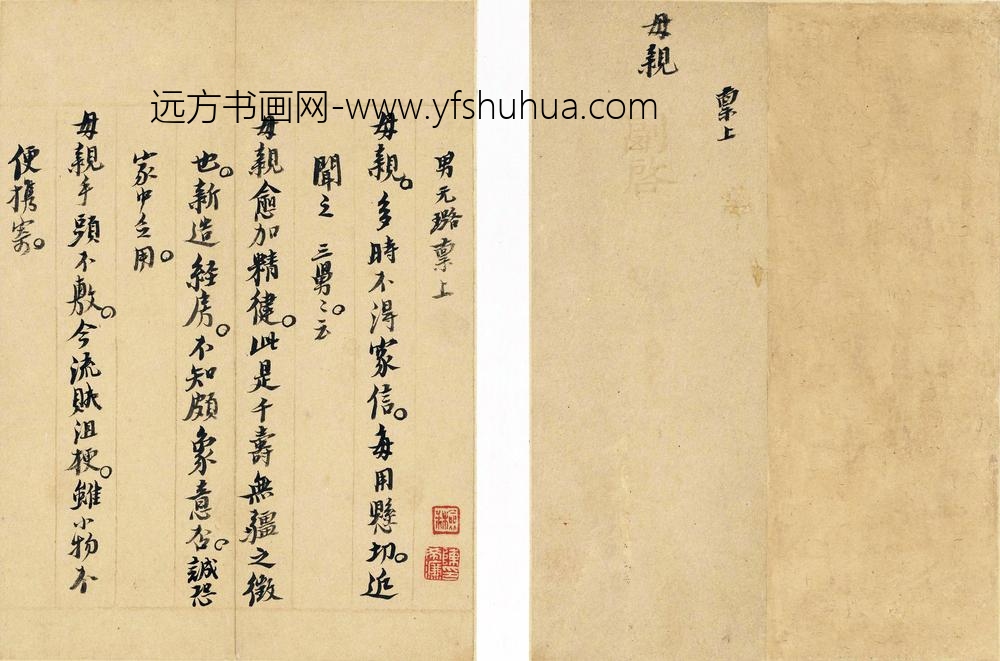 远方书画网-www.yfshuhua.com
男元璐稟上
母親。多時不得家信。每用懸切。近
聞之 三舅〻云
母親愈加精健。此是千壽無疆之徵
也。新造経房。不知頗象意否。誠恐
家中乏用。
母親手頭不敷。今流賊沮梗。雖小物不
便攜寄。
母親
稟上